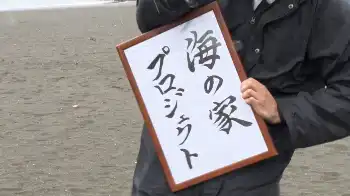 海の家
プロジェクト